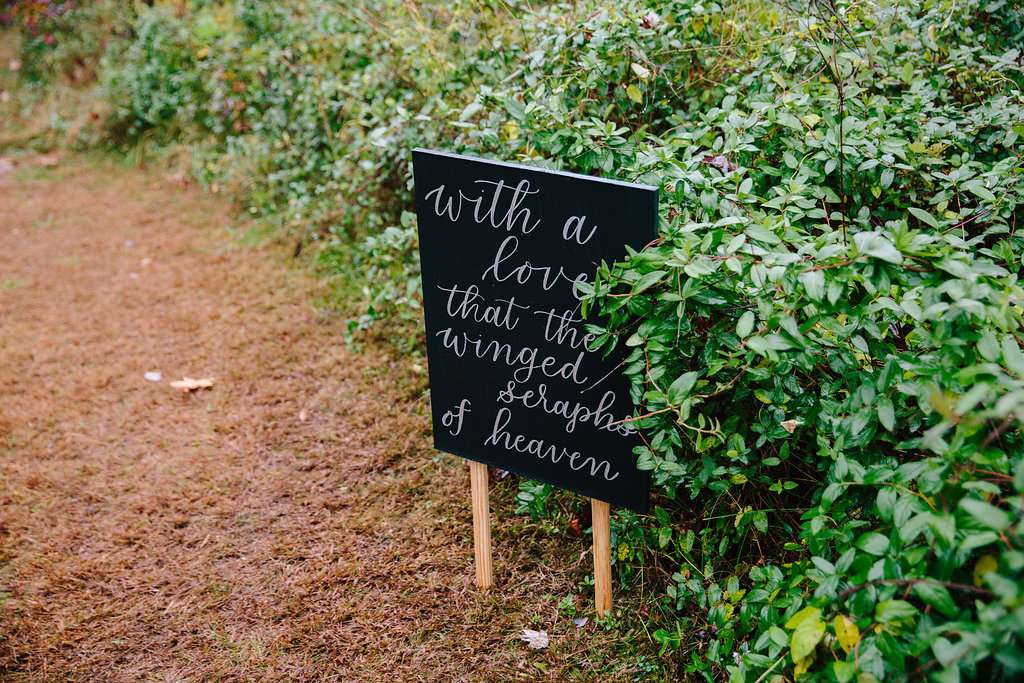 with a
love
that the
winged
seraphs
of heaven